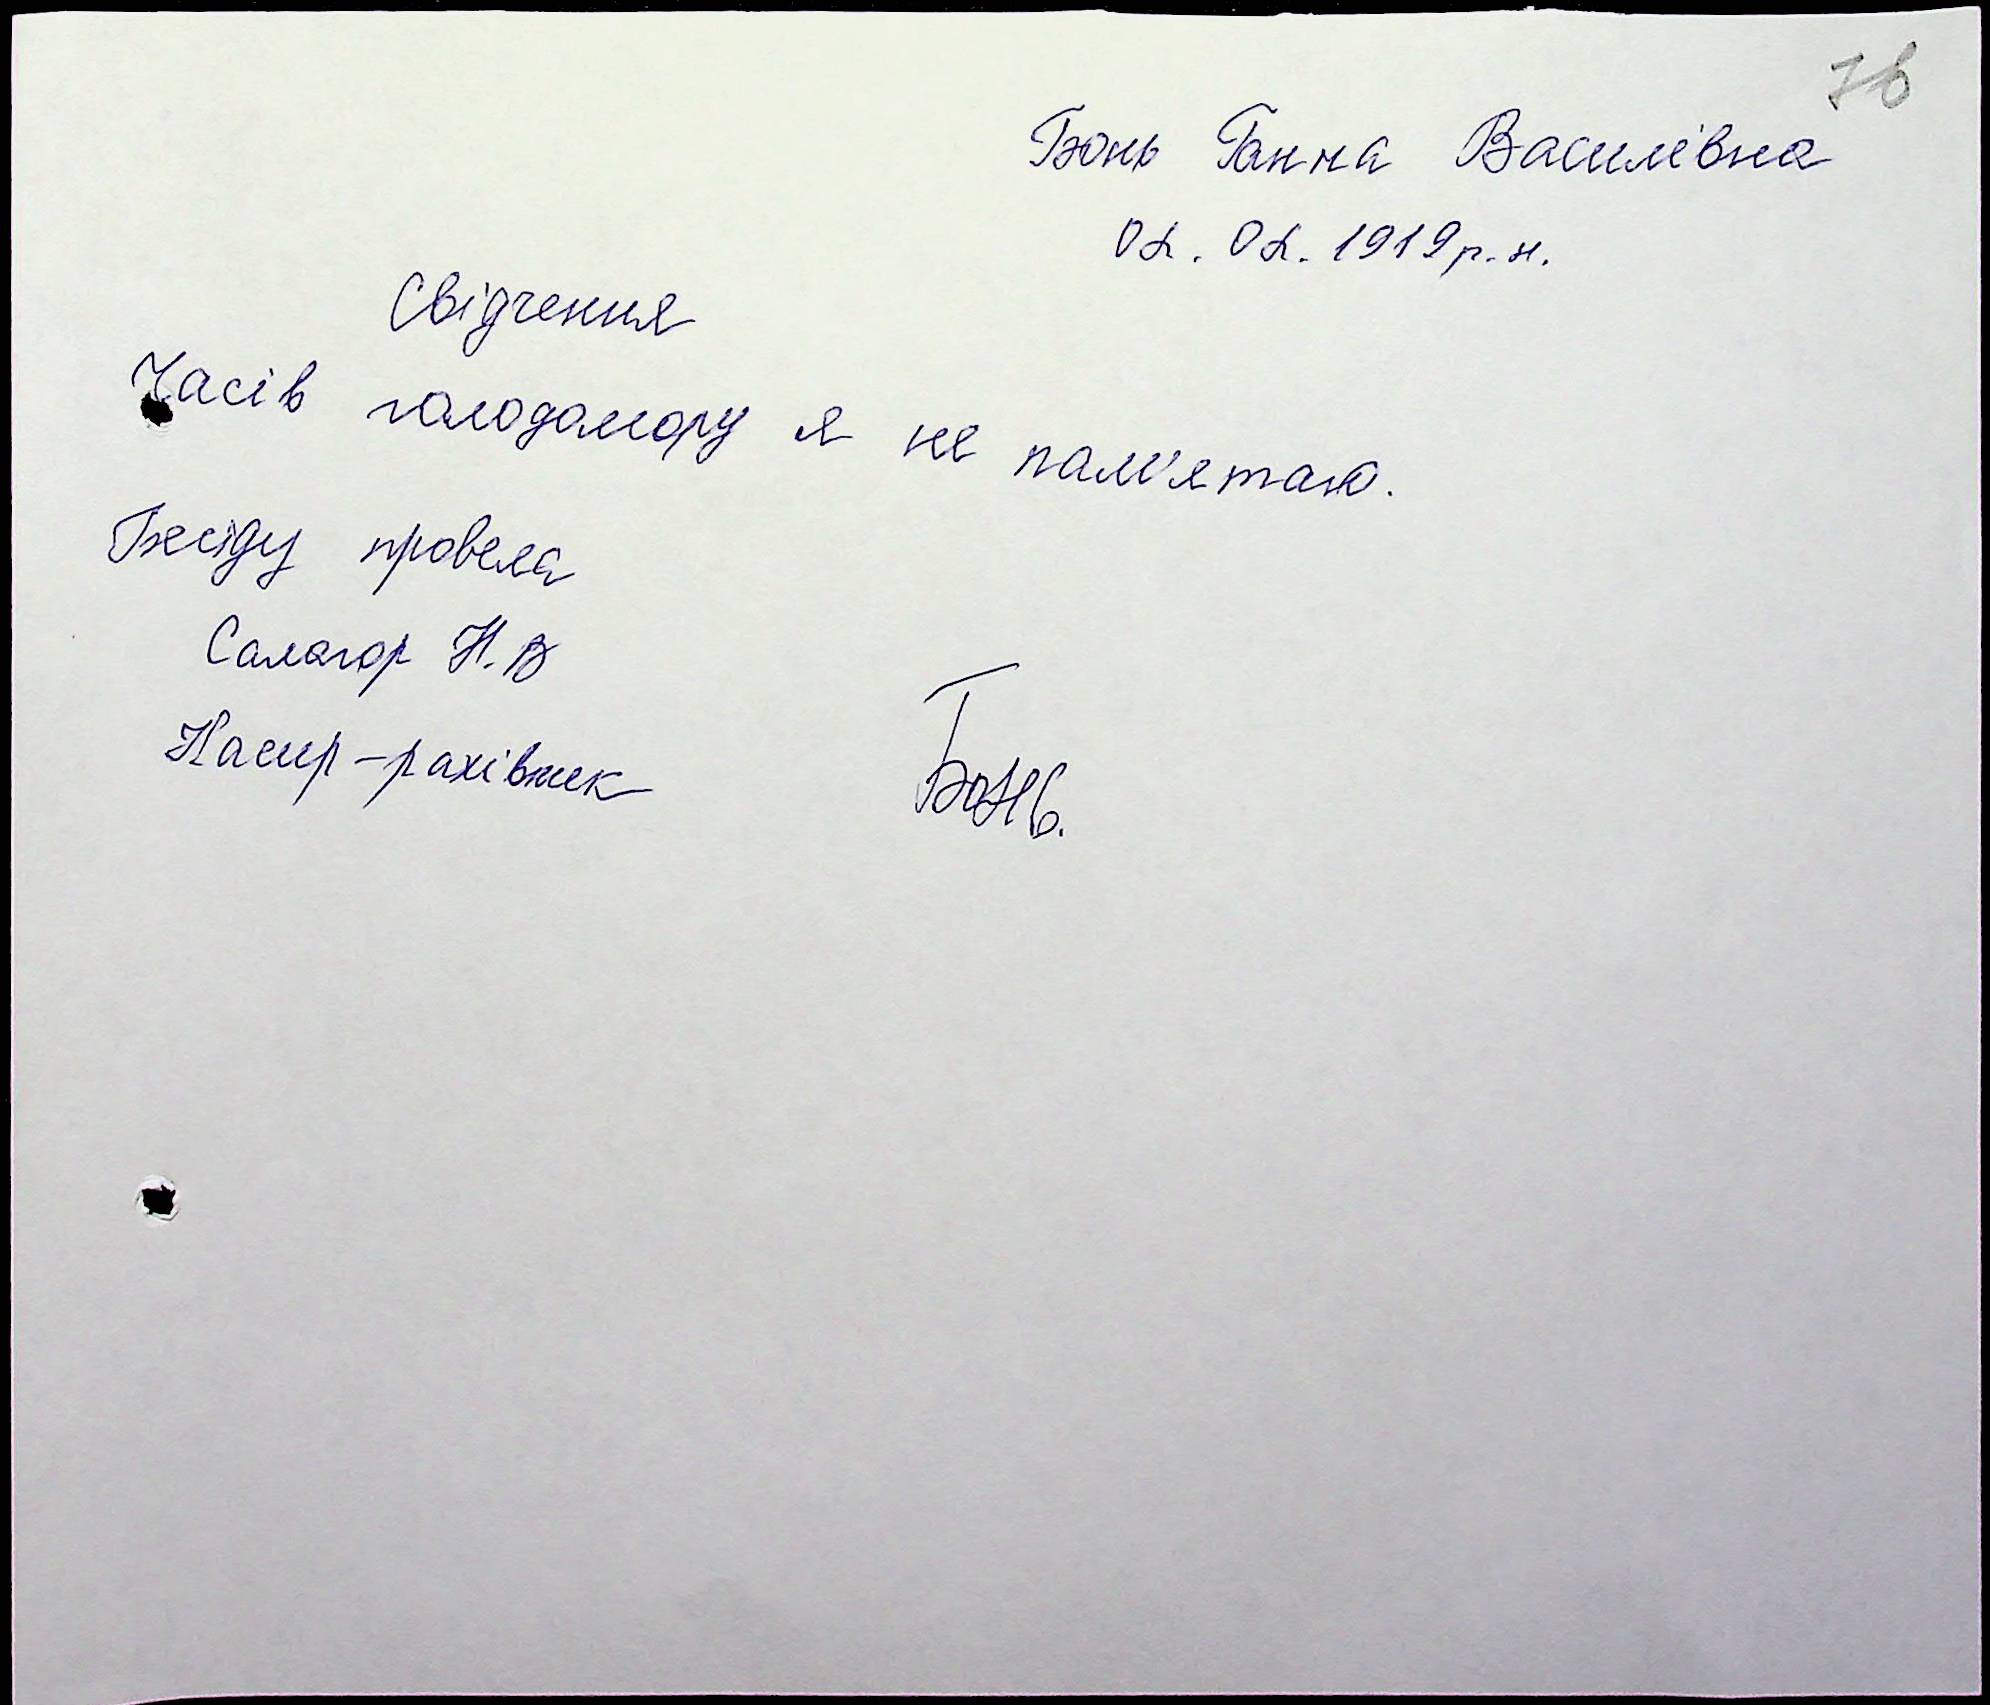 76
Бонь Ганна Василівна
02. 02. 1919 р. н.
Свідчення
Часів голодомору я не пам'ятаю.
Бесіду провела
Салогор Н. В
Касир-рахівник
Бонь.